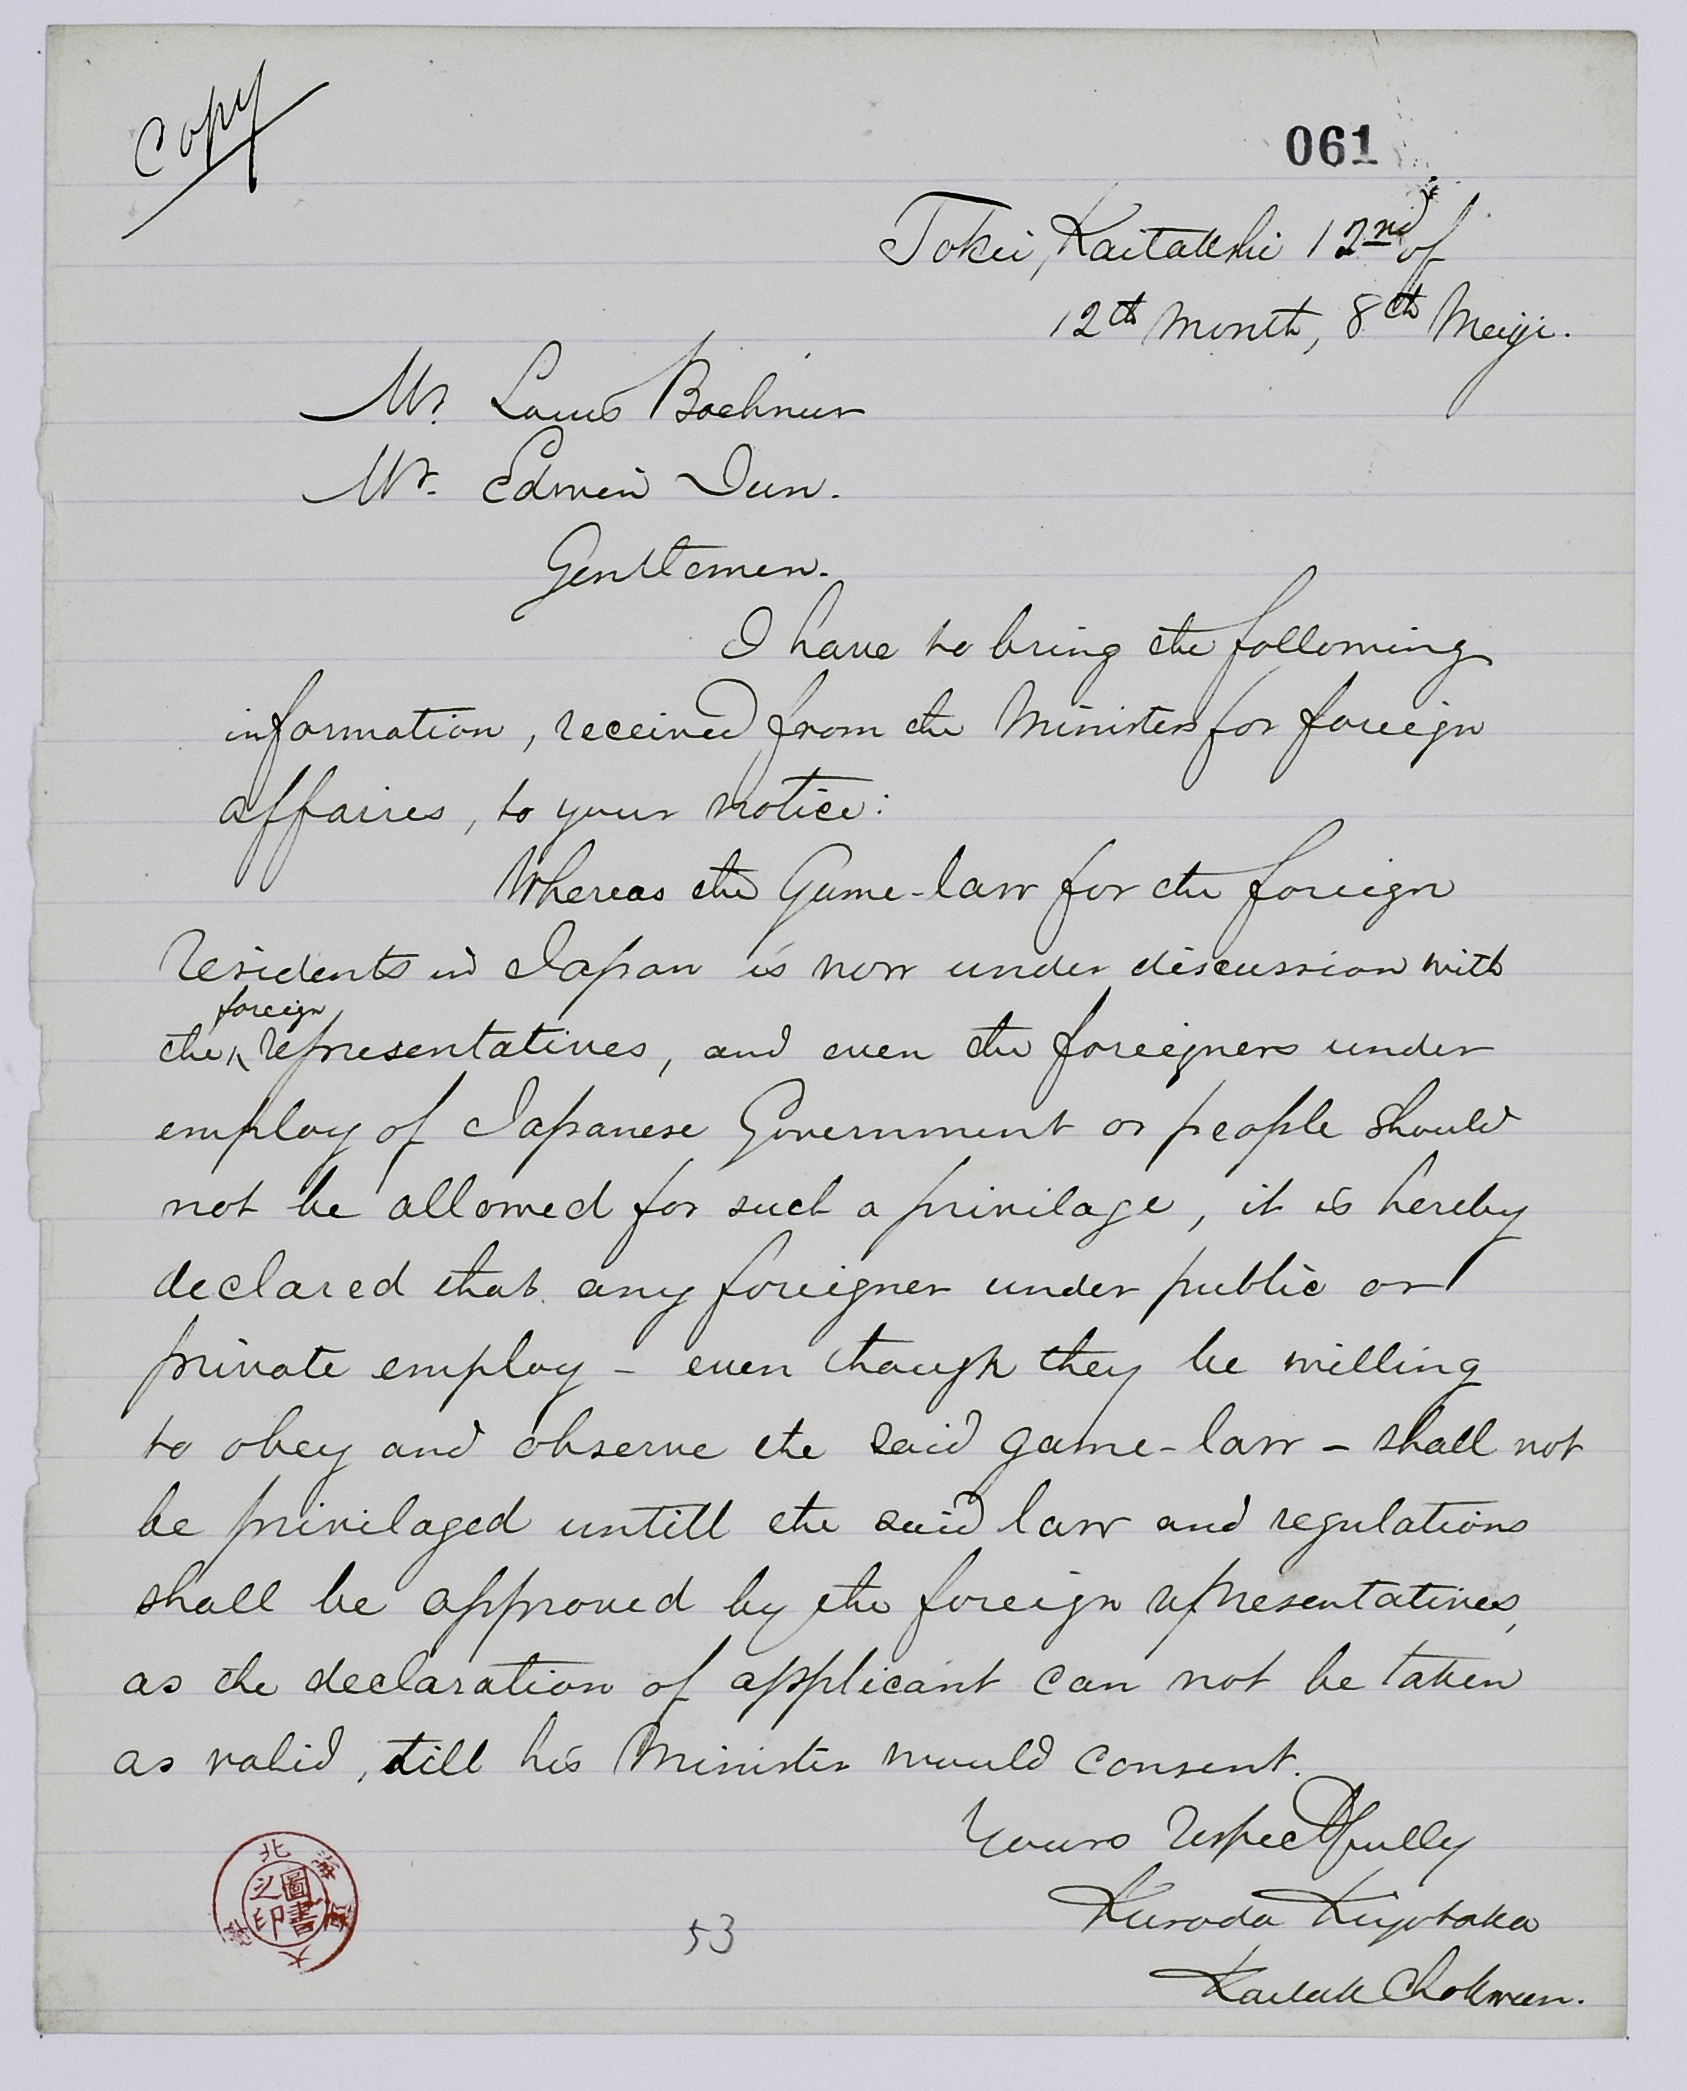 Copy
061
Tokei, Kaitakshi 12nd of
12th Month, 8th Meiji.
Mr. Louis Boehmer
Mr. Edwin Dun.
Gentlemen.
I have to bring the following
information, received from the Minister for foreign
affaires, to your notice:
Whereas the Game-law for the foreign
residents in Japan is now under discussion with
the foreign representatives, and even the foreigners under
employ of Japanese Government or people should
not be allowed for such a privilage, it is hereby
declared that any foreigner under public or
private employ - even though they be willing
to obey and observe the said game-law - shall not
be privilaged untill the said law and regulations
shall be approved by the foreign representatives,
as the declaration of applicant can not be taken
as valid, till his Minister would consent.
Yours respectfully
Kuroda Kiyotaka
Kaitak Chokwan.
北海道大學
圖書之印
53